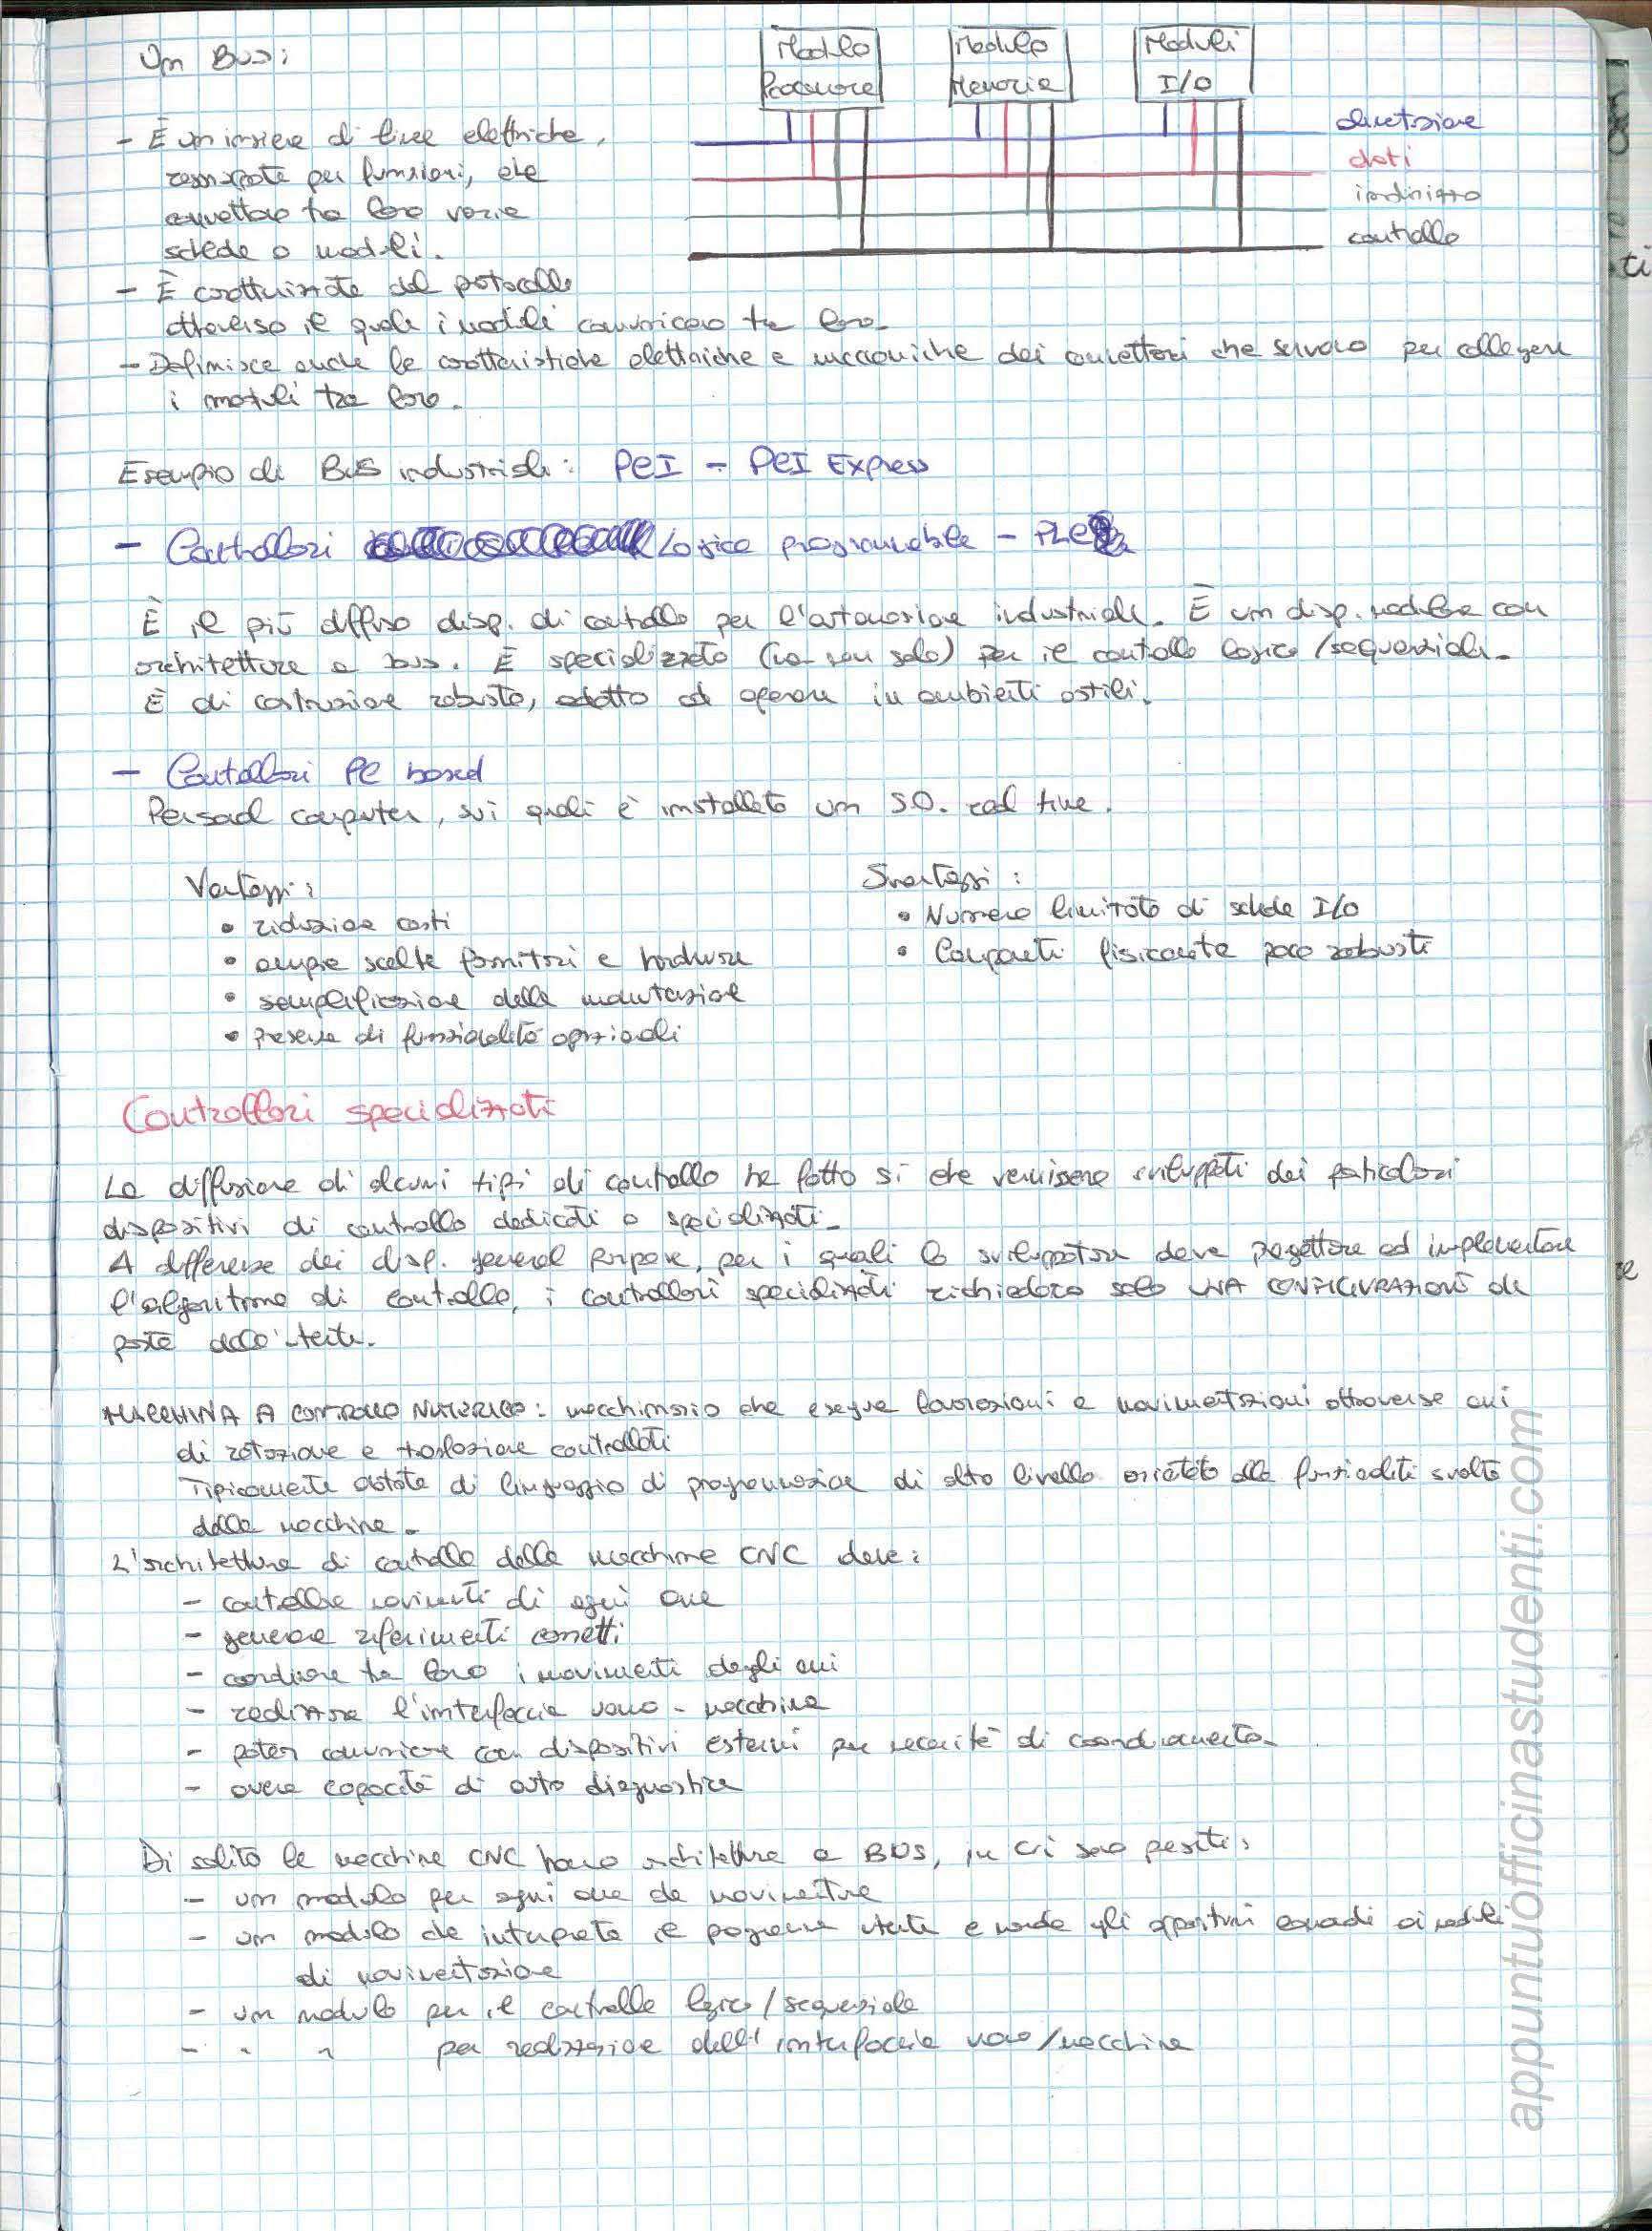 Un Bus:
- È un insieme di linee elettriche,
raggruppate per funzioni, che
connettono tra loro varie
schede o moduli.
- È caratterizzato dal protocollo
attraverso il quale i moduli comunicano tra loro.
- Definisce anche le caratteristiche elettriche e meccaniche dei connettori che servono per collegare
i moduli tra loro.
Modulo Processore
Modulo Memoria
Moduli I/O
alimentazione
dati
indirizzo
controllo
Esempio di BUS industriali: PCI - PCI Express
- Controllori Logica programmabile - PLC
È il più diffuso disp. di controllo per l'automazione industriale. È un disp. modulare con
architettura a bus. È specializzato (ma non solo) per il controllo logico/sequenziale.
È di costruzione robusta, adatto ad operare in ambienti ostili.
- Controllori PC based
Personal computer, sui quali è installato un S.O. real time.
Vantaggi:
• riduzione costi
• ampia scelta fornitori e hardware
• semplificazione della manutenzione
• presenza di funzionalità opzionali
Svantaggi:
• Numero limitato di schede I/O
• Componenti fisicamente poco robusti
Controllori specializzati
La diffusione di alcuni tipi di controllo ha fatto si che venissero sviluppati dei particolari
dispositivi di controllo dedicati o specializzati.
A differenza dei disp. general purpose, per i quali lo sviluppatore deve progettare ed implementare
l'algoritmo di controllo, i controllori specializzati richiedono solo UNA CONFIGURAZIONE da
parte dell'utente.
MACCHINA A CONTROLLO NUMERICO: macchinario che esegue lavorazioni e movimentazioni attraverso assi
di rotazione e traslazione controllati
Tipicamente dotate di linguaggio di programmazione di alto livello orientato alle funzionalità svolte
dalla macchina.
L'architettura di controllo delle macchine CNC deve:
- controllare movimenti di ogni asse
- generare riferimenti corretti
- coordinare tra loro i movimenti degli assi
- realizzare l'interfaccia uomo - macchina
- poter comunicare con dispositivi esterni per necessità di coordinamento.
- avere capacità di auto diagnostica
Di solito le macchine CNC hanno architettura a BUS, in cui sono presenti:
- un modulo per ogni asse da movimentare
- un modulo che interpreta il programma utente e manda gli opportuni comandi ai moduli
di movimentazione
- un modulo per il controllo logico/sequenziale
- " " per realizzazione dell'interfaccia uomo/macchina
appuntiofficinastudenti.com